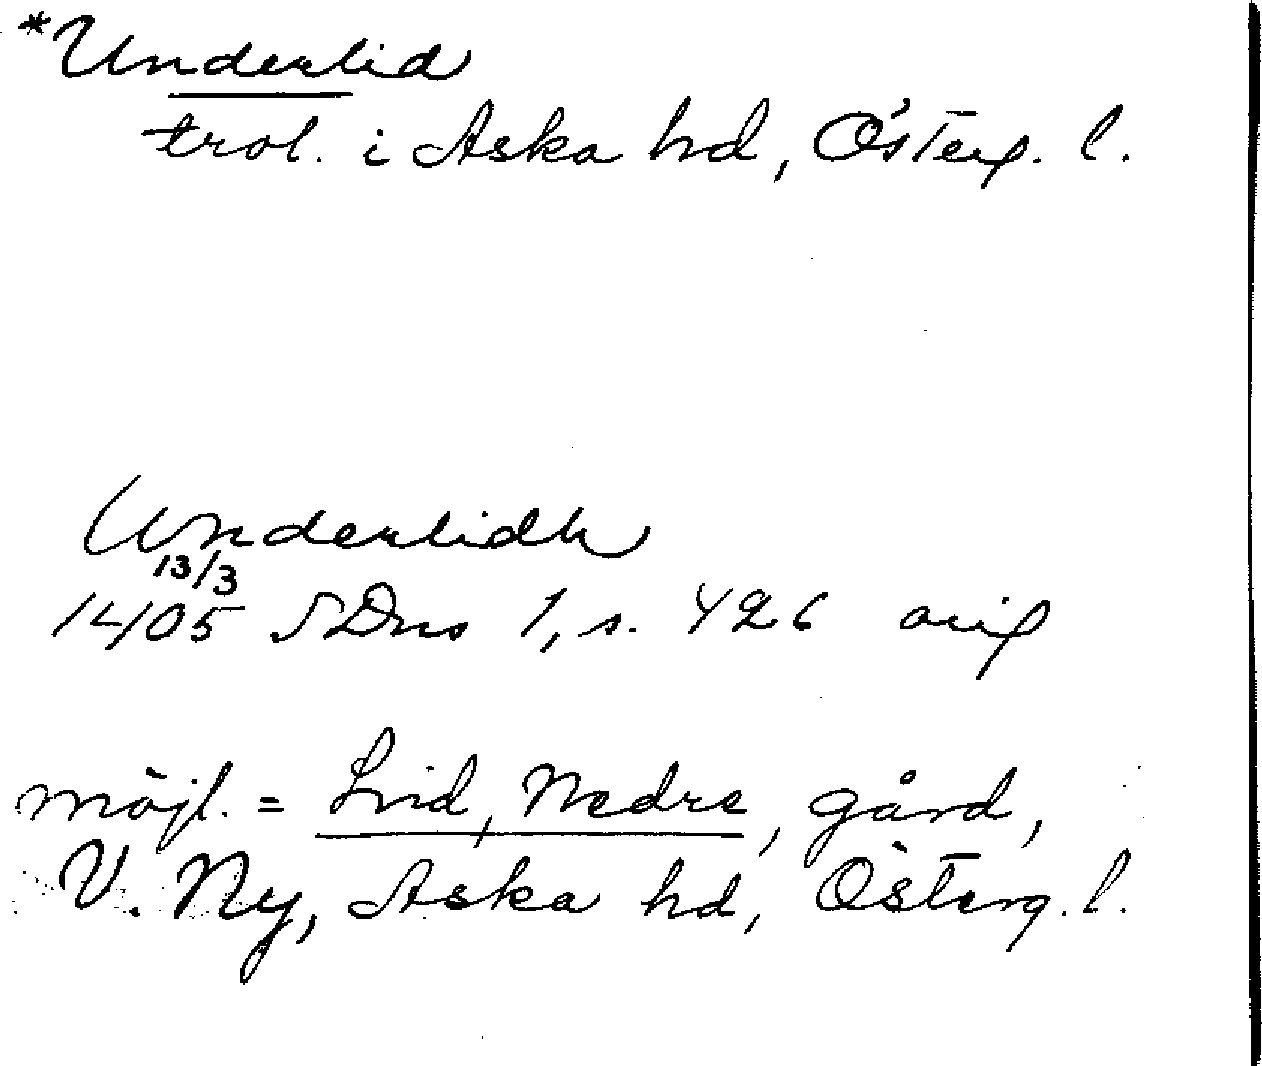 *Underlid
trol. i Aska hd, Österg. l.
Underlidh
13/3
1405 SDns 1, s. 426 orig
möjl. = Lid, Nedre, gård,
V. Ny, Aska hd, Österg. l.